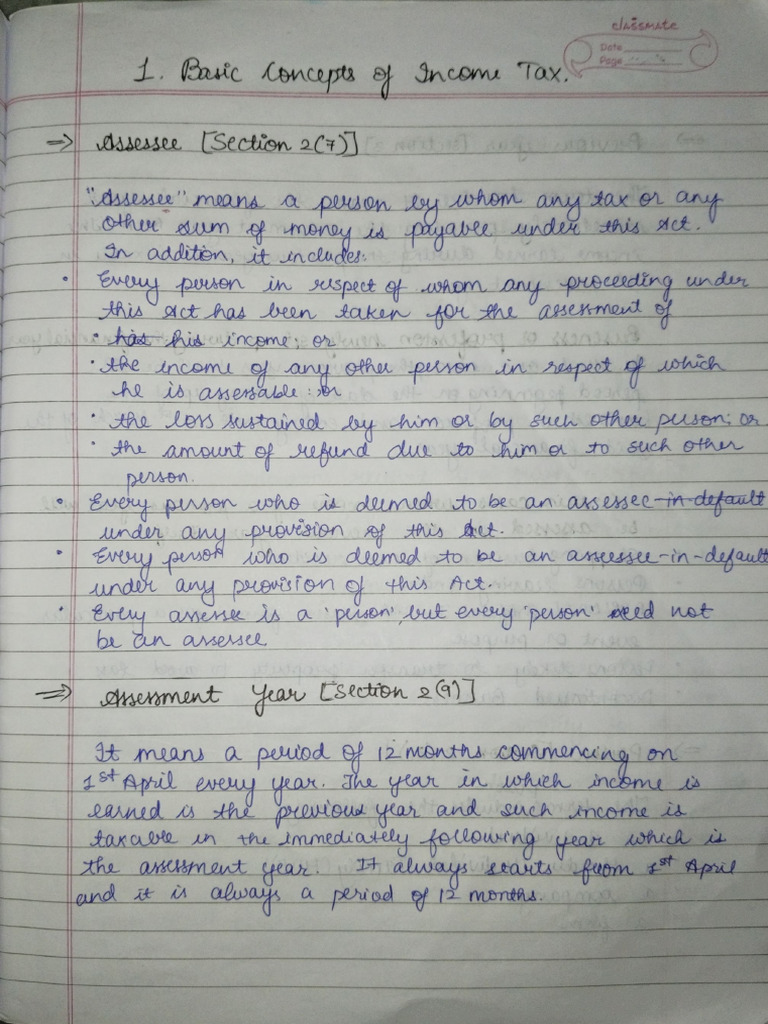 classmate
Date
Page
1. Basic Concepts of Income Tax.
⇒ Assessee [Section 2(7)]
"Assessee" means a person by whom any tax or any
other sum of money is payable under this Act.
In addition, it includes:
• Every person in respect of whom any proceeding under
this Act has been taken for the assessment of
• his income; or
• the income of any other person in respect of which
he is assessable: or
• the loss sustained by him or by such other person; or
• the amount of refund due to him or to such other
person.
• Every person who is deemed to be an assessee-in-default
under any provision of this Act.
• Every person who is deemed to be an assessee-in-default
under any provision of this Act.
• Every assesse is a 'person', but every 'person' need not
be an assessee
⇒ Assessment Year [Section 2(9)]
It means a period of 12 months commencing on
1st April every year. The year in which income is
earned is the previous year and such income is
taxable in the immediately following year which is
the assessment year. It always starts from 1st April
and it is always a period of 12 months.